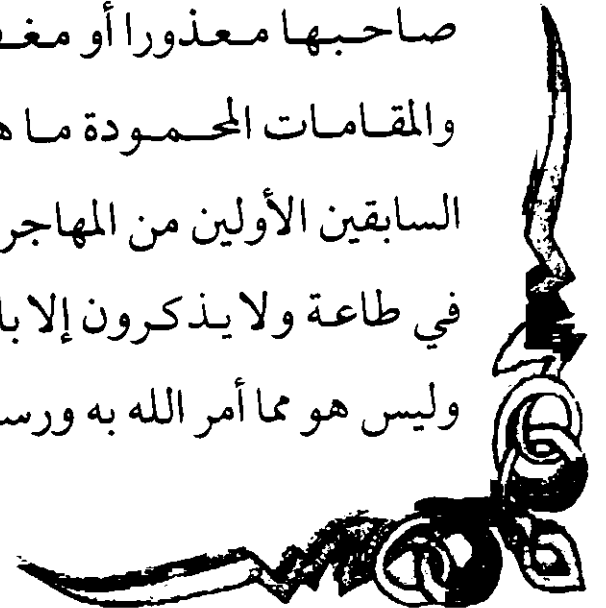 صاحبها معذورا أو
والمقامات المحمودة ما
السابقين الأولين من
في طاعة ولا يذكرون إلا
وليس هو مما أمر الله به